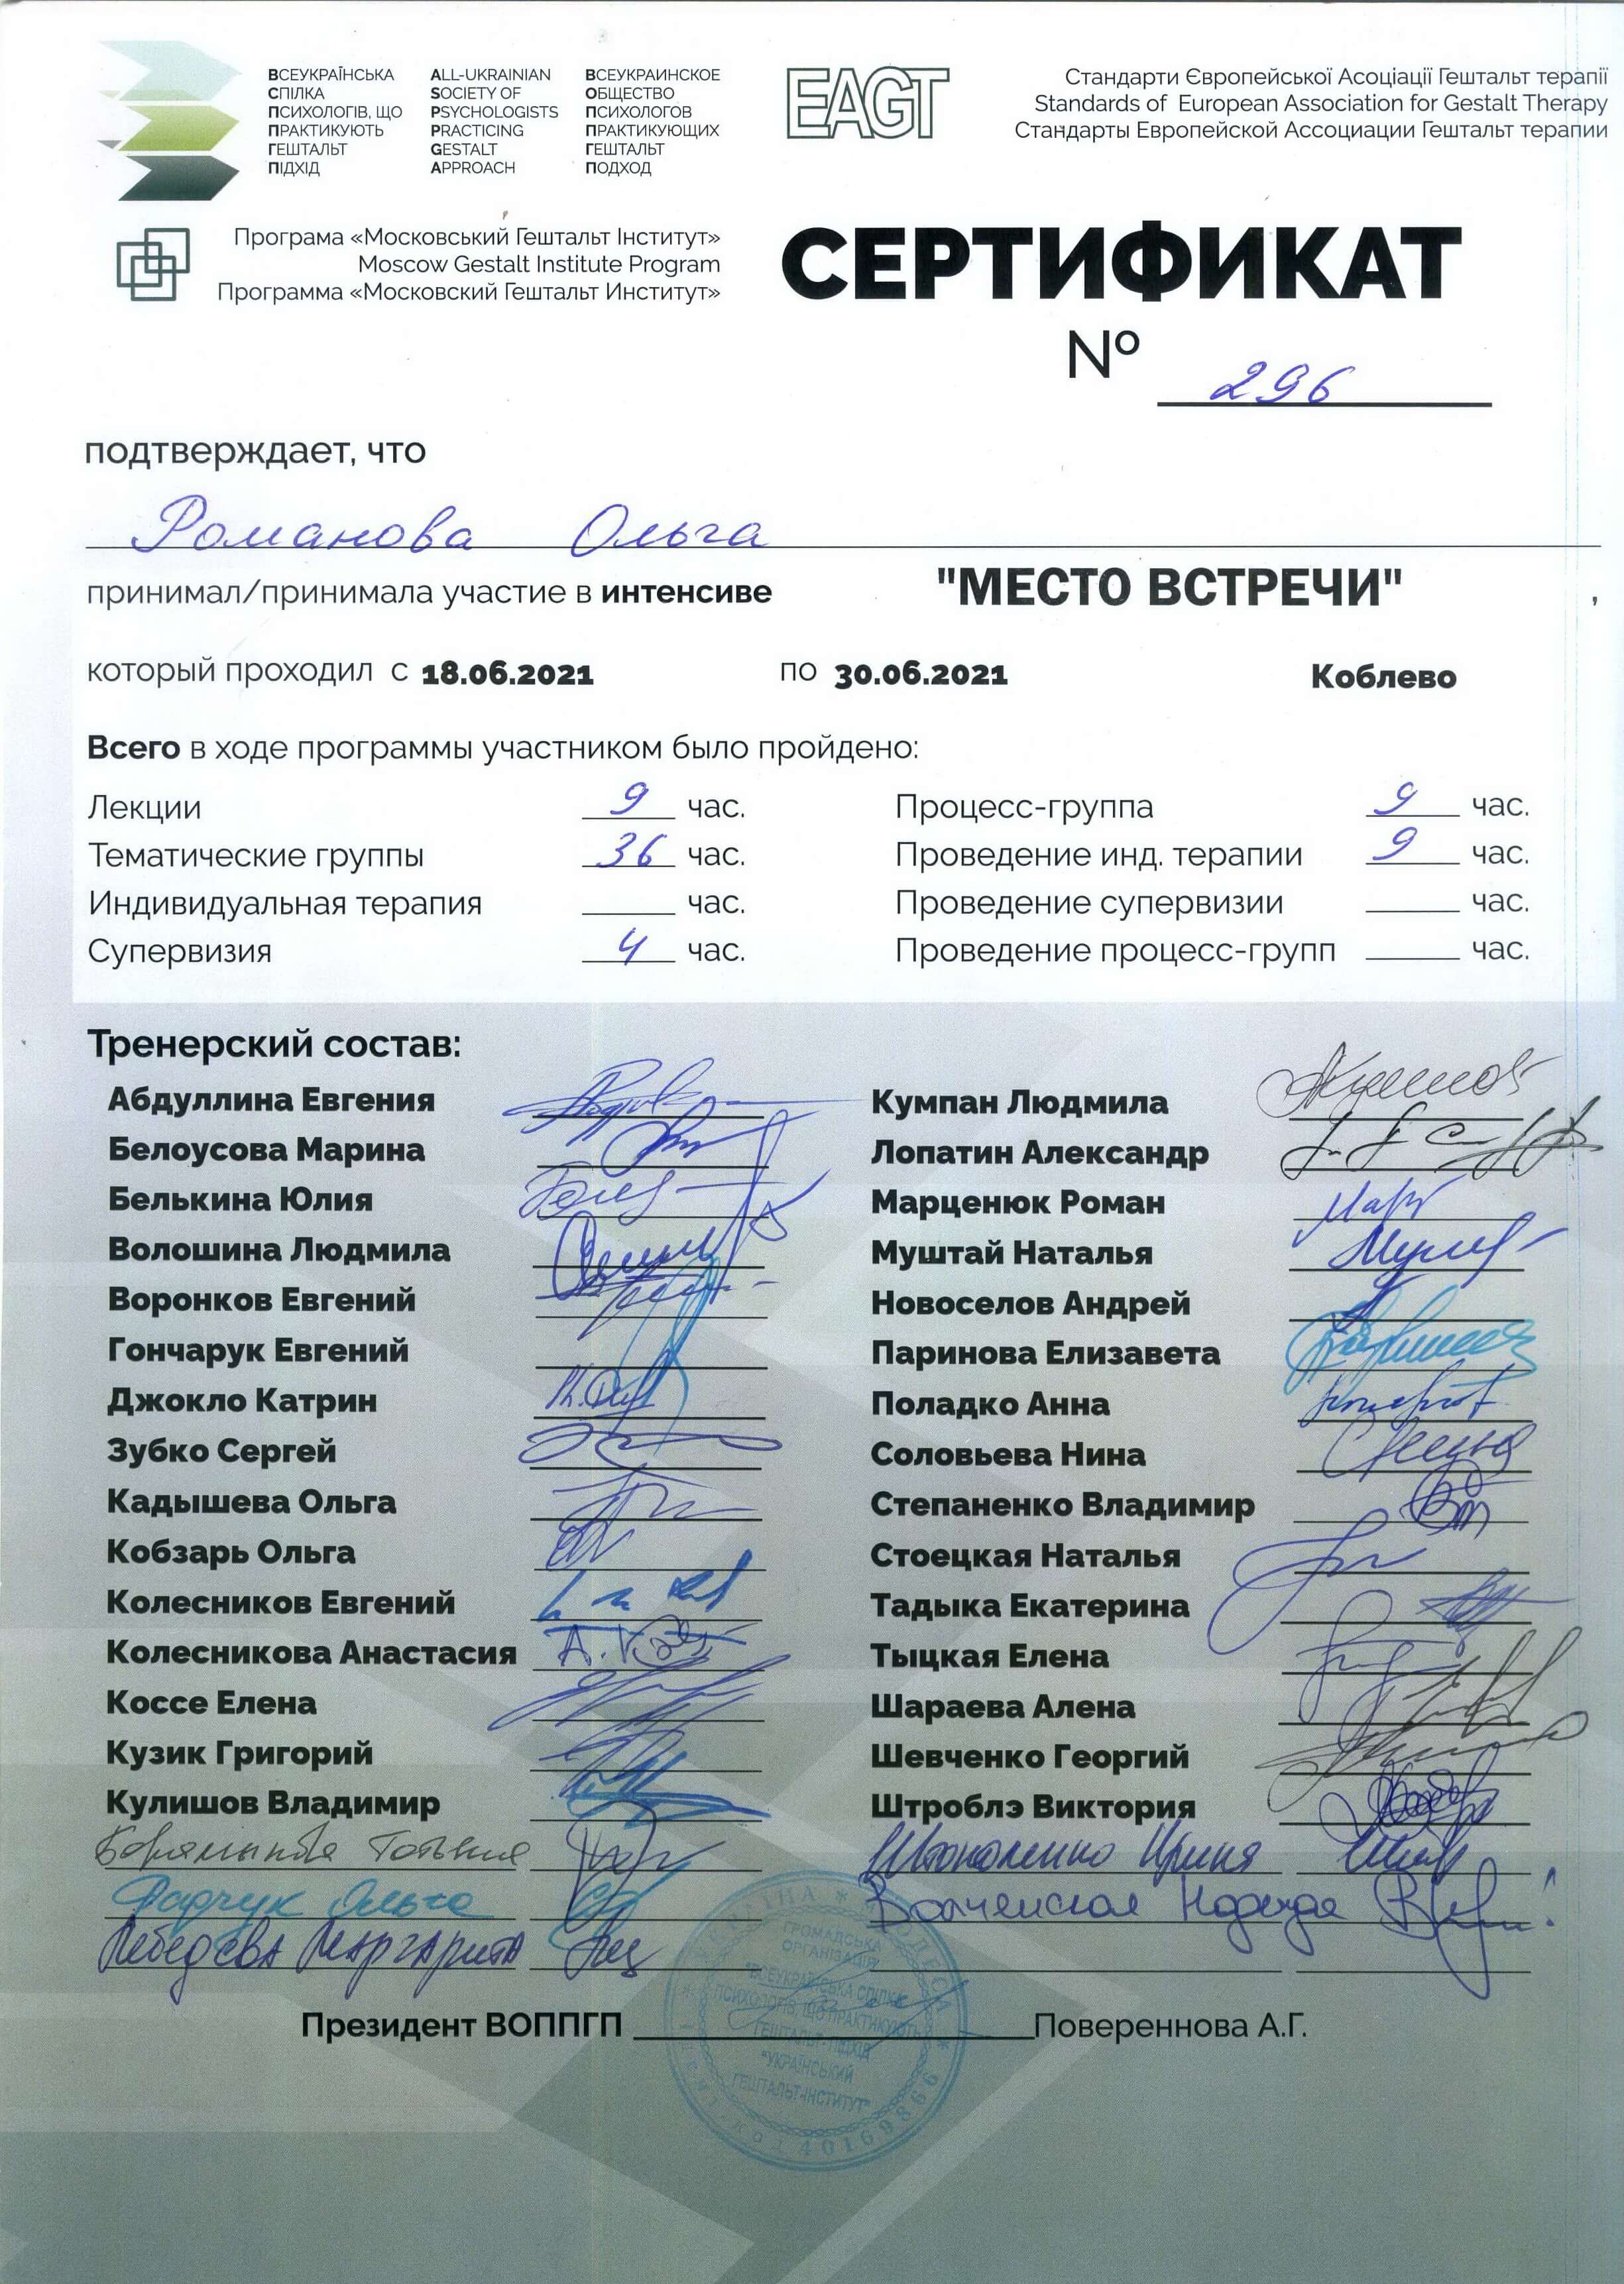 ВСЕУКРАЇНСЬКА
СПІЛКА
ПСИХОЛОГІВ, ЩО
ПРАКТИКУЮТЬ
ГЕШТАЛЬТ
ПІДХІД
ALL-UKRAINIAN
SOCIETY OF
PSYCHOLOGISTS
PRACTICING
GESTALT
APPROACH
ВСЕУКРАИНСКОЕ
ОБЩЕСТВО
ПСИХОЛОГОВ
ПРАКТИКУЮЩИХ
ГЕШТАЛЬТ
ПОДХОД
EAGT
Стандарти Європейської Асоціації Гештальт терапії
Standards of European Association for Gestalt Therapy
Стандарты Европейской Ассоциации Гештальт терапии
Програма «Московський Гештальт Інститут»
Moscow Gestalt Institute Program
Программа «Московский Гештальт Институт»
СЕРТИФИКАТ
№ 296
подтверждает, что
Романова Ольга
принимал/принимала участие в интенсиве "МЕСТО ВСТРЕЧИ" ,
который проходил с 18.06.2021 по 30.06.2021 Коблево
Всего в ходе программы участником было пройдено:
Лекции 9 час. Процесс-группа 9 час.
Тематические группы 36 час. Проведение инд. терапии 9 час.
Индивидуальная терапия час. Проведение супервизии час.
Супервизия 4 час. Проведение процесс-групп час.
Тренерский состав:
Абдуллина Евгения Кумпан Людмила
Белоусова Марина Лопатин Александр
Белькина Юлия Марценюк Роман
Волошина Людмила Муштай Наталья
Воронков Евгений Новоселов Андрей
Гончарук Евгений Паринова Елизавета
Джокло Катрин Поладко Анна
Зубко Сергей Соловьева Нина
Кадышева Ольга Степаненко Владимир
Кобзарь Ольга Стоецкая Наталья
Колесников Евгений Тадыка Екатерина
Колесникова Анастасия Тыцкая Елена
Коссе Елена Шараева Алена
Кузик Григорий Шевченко Георгий
Кулишов Владимир Штроблэ Виктория
Ирина
Ольга Надежда
Лебедева Маргарита
Президент ВОППГП Повереннова А.Г.
УКРАЇНА * М. ОДЕСА *
ГРОМАДСЬКА
ОРГАНІЗАЦІЯ
"ВСЕУКРАЇНСЬКА СПІЛКА
ПСИХОЛОГІВ, ЩО ПРАКТИКУЮТЬ
ГЕШТАЛЬТ-ПІДХІД
"УКРАЇНСЬКИЙ
ГЕШТАЛЬТ-ІНСТИТУТ"
40169866